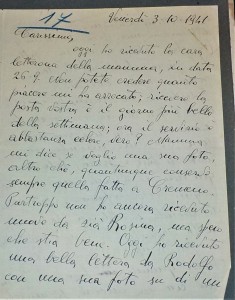 17
Venerdì 3-10-1941
Carissimi,
oggi ho ricevuto la cara
letterona della mamma, in data
26-9. Non potete credere quanto
piacere mi ha arrecato; ricevere la
posta vostra è il giorno più bello
della settimana; ora il servizio è
abbastanza celere, vero? Mamma
mi dice se voglio una sua foto,
altro che, quantunque conservi
sempre quella fatta a
Purtroppo non ho ancora ricevuto
nuove da zia Rosina, ma spero
che stia bene. Oggi ho ricevuto
una bella lettera da Rodolfo
con una sua foto su di un